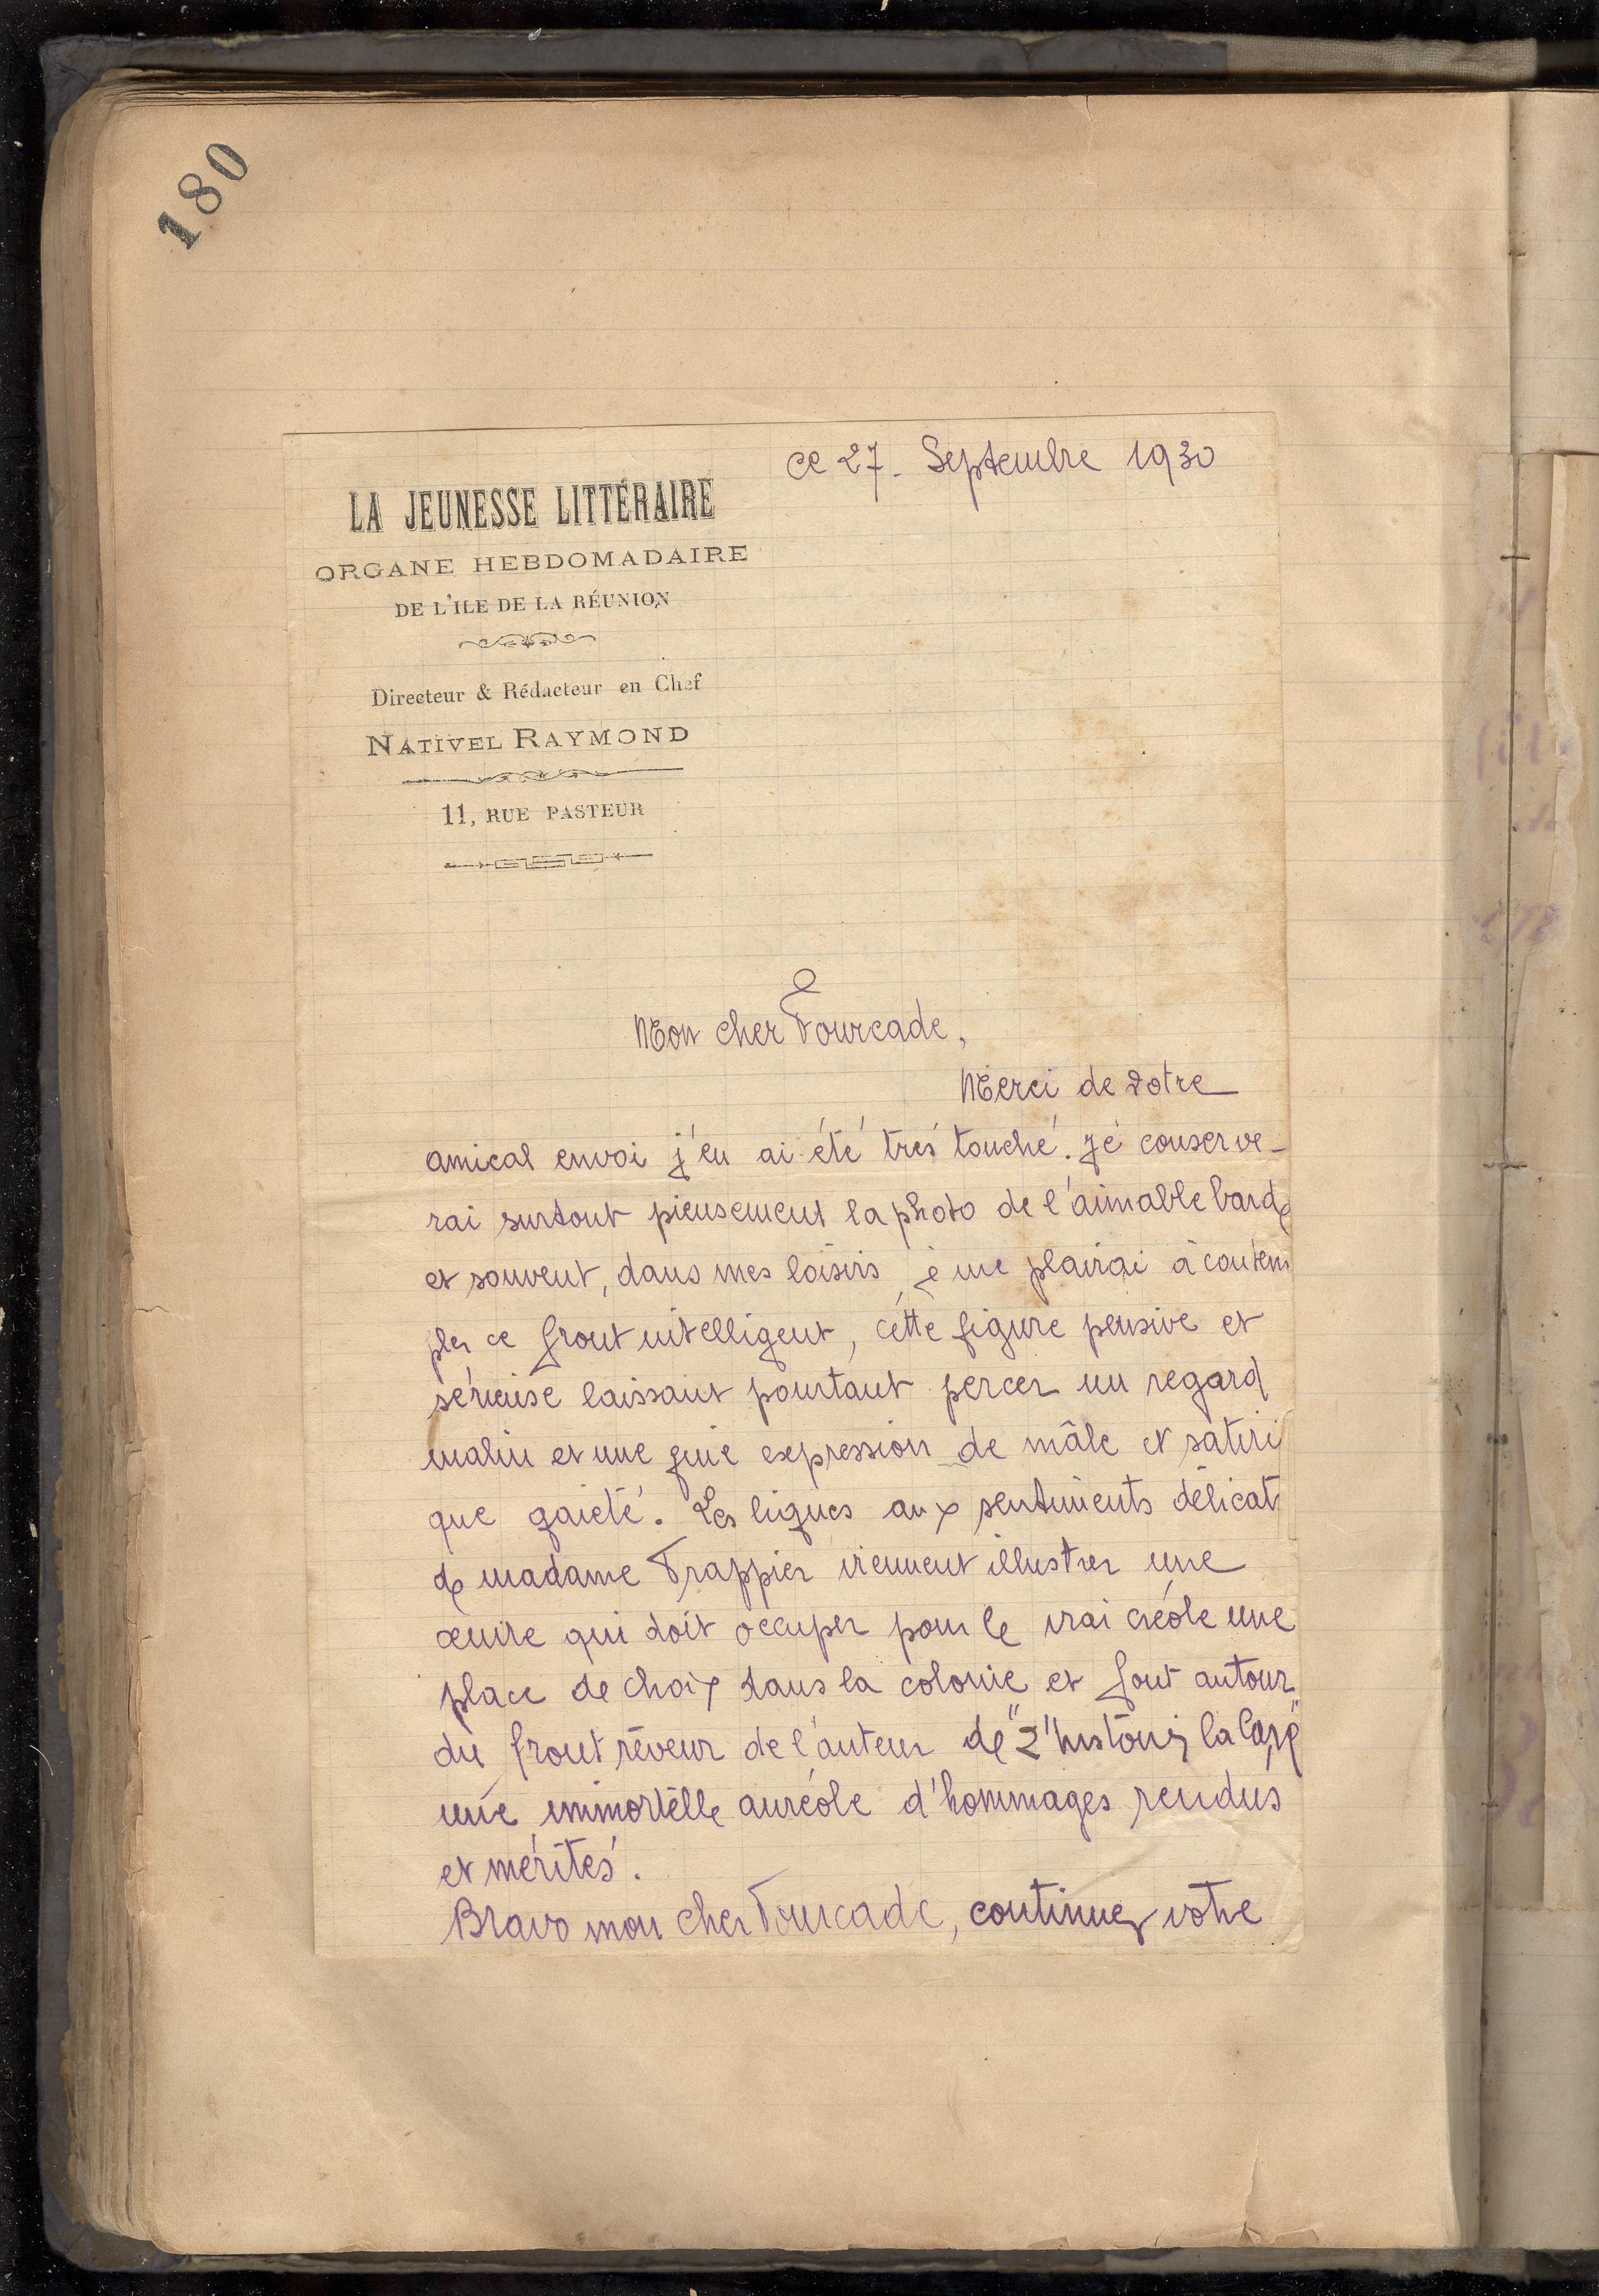 180
ce 27. Septembre 1930
LA JEUNESSE LITTÉRAIRE
ORGANE HEBDOMADAIRE
DE L'ILE DE LA RÉUNION
Directeur & Rédacteur en Chef
NATIVEL RAYMOND
11, RUE PASTEUR
Mon cher Fourcade,
Merci de votre
amical envoi j'en ai été très touché. Je conserve-
rai surtout pieusement la photo de l'aimable barde
et souvent, dans mes loisirs, je me plairai à contem
pler ce front intelligent, cette figure pensive et
sérieuse laissant pourtant percer un regard
malin et une fine expression de mâle et satiri
que gaieté. Les lignes aux sentiments délicats
de madame Frappier viennent illustrer une
œuvre qui doit occuper pour le vrai créole une
place de choix dans la colonie et font autour
du front rêveur de l'auteur de "Z'histoires la Caze"
une immortelle auréole d'hommages rendus
et mérités.
Bravo mon cher Fourcade, continuez votre